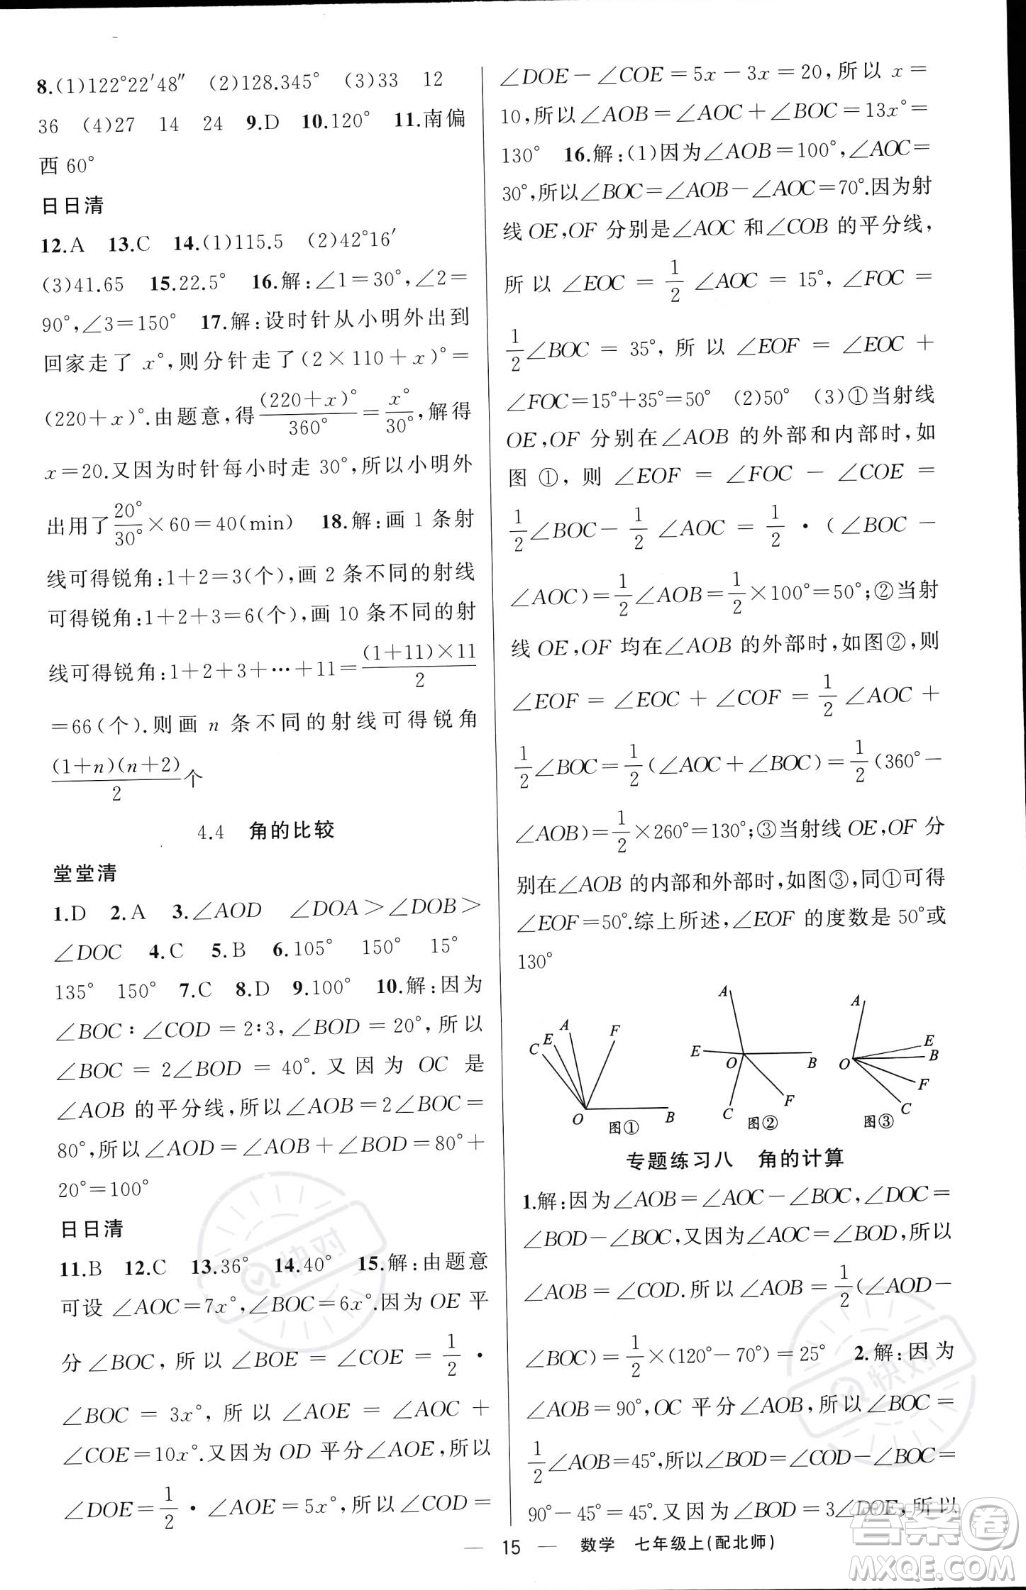 8.(1)122°22′48″ (2)128.345° (3)33 12
36 (4)27 14 24 9.D 10.120° 11.南偏
西60°
日日清
12.A 13.C 14.(1)115.5 (2)42°16′
(3)41.65 15.22.5° 16.解:∠1=30°,∠2=
90°,∠3=150° 17.解:设时针从小明外出到
回家走了 x°,则分针走了(2×110+x)°=
(220+x)°.由题意,得(220+x)°/360°=x°/30°,解得
x=20.又因为时针每小时走30°,所以小明外
出用了20°/30°×60=40(min) 18.解:画1条射
线可得锐角:1+2=3(个),画2条不同的射线
可得锐角:1+2+3=6(个),画10条不同的射
线可得锐角:1+2+3+…+11=(1+11)×11/2
=66(个).则画 n 条不同的射线可得锐角
(1+n)(n+2)/2个
4.4 角的比较
堂堂清
1.D 2.A 3.∠AOD ∠DOA>∠DOB>
∠DOC 4.C 5.B 6.105° 150° 15°
135° 150° 7.C 8.D 9.100° 10.解:因为
∠BOC∶∠COD=2∶3,∠BOD=20°,所以
∠BOC=2∠BOD=40°.又因为 OC 是
∠AOB 的平分线,所以∠AOB=2∠BOC=
80°,所以∠AOD=∠AOB+∠BOD=80°+
20°=100°
日日清
11.B 12.C 13.36° 14.40° 15.解:由题意
可设∠AOC=7x°,∠BOC=6x°.因为 OE 平
分∠BOC,所以∠BOE=∠COE=1/2·
∠BOC=3x°,所以∠AOE=∠AOC+
∠COE=10x°.又因为 OD 平分∠AOE,所以
∠DOE=1/2·∠AOE=5x°,所以∠COD=
∠DOE-∠COE=5x-3x=20,所以 x=
10,所以∠AOB=∠AOC+∠BOC=13x°=
130° 16.解:(1)因为∠AOB=100°,∠AOC=
30°,所以∠BOC=∠AOB-∠AOC=70°.因为射
线 OE,OF 分别是∠AOC 和∠COB 的平分线,
所以∠EOC=1/2∠AOC=15°,∠FOC=
1/2∠BOC=35°,所以∠EOF=∠EOC+
∠FOC=15°+35°=50° (2)50° (3)①当射线
OE,OF 分别在∠AOB 的外部和内部时,如
图①,则∠EOF=∠FOC-∠COE=
1/2∠BOC-1/2∠AOC=1/2·(∠BOC-
∠AOC)=1/2∠AOB=1/2×100°=50°;②当射
线 OE,OF 均在∠AOB 的外部时,如图②,则
∠EOF=∠EOC+∠COF=1/2∠AOC+
1/2∠BOC=1/2(∠AOC+∠BOC)=1/2(360°-
∠AOB)=1/2×260°=130°;③当射线 OE,OF 分
别在∠AOB 的内部和外部时,如图③,同①可得
∠EOF=50°.综上所述,∠EOF 的度数是50°或
130°
A E C F O B 图①
A E O B F C 图②
A O E B F C 图③
专题练习八 角的计算
1.解:因为∠AOB=∠AOC-∠BOC,∠DOC=
∠BOD-∠BOC,又因为∠AOC=∠BOD,所以
∠AOB=∠COD.所以∠AOB=1/2(∠AOD-
∠BOC)=1/2×(120°-70°)=25° 2.解:因为
∠AOB=90°,OC 平分∠AOB,所以∠BOC=
1/2∠AOB=45°,所以∠BOD=∠COD-∠BOC=
90°-45°=45°.又因为∠BOD=3∠DOE,所以
15 数学 七年级上(配北师)
快对
快对
答案圈
MXQE.COM